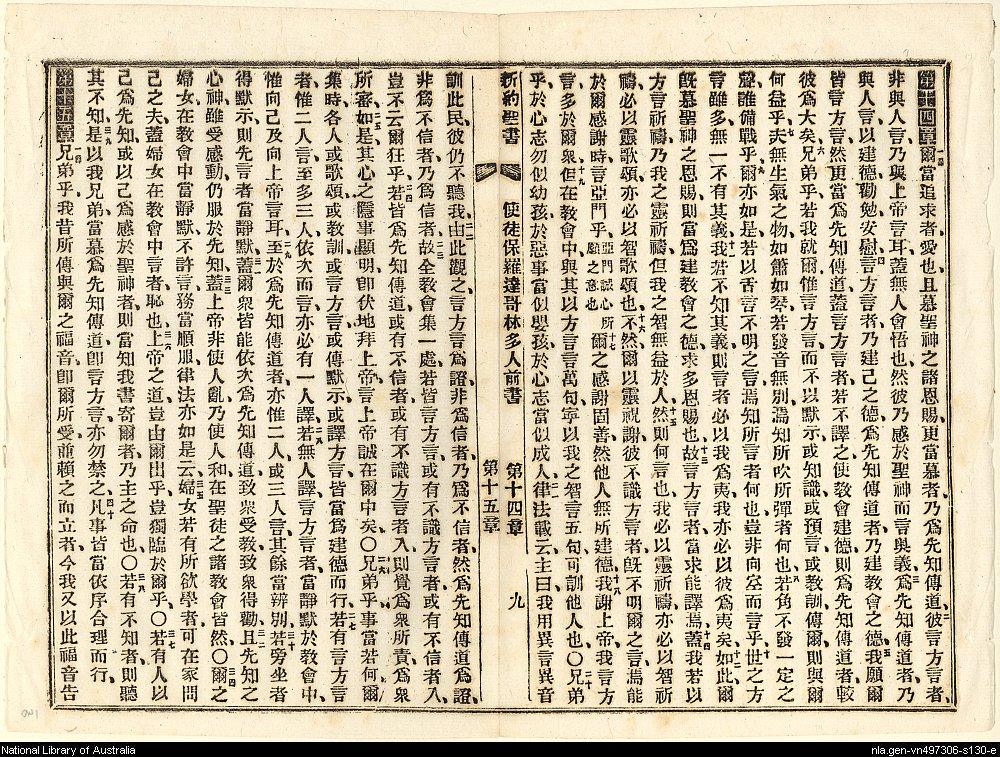 第十四章爾當追求者愛也且慕聖神之諸恩賜更當慕者乃爲先知傳道彼言方言者
非與人言乃與上帝言耳蓋無人會悟也然彼乃感於聖神而言與義爲先知傳道者乃
與人言以建德勸勉安慰言方言者乃建己之德爲先知傳道者乃建教會之德我願爾
皆言方言然更當爲先知傳道蓋言方言者若不譯之使教會建德則爲先知傳道者較
彼爲大矣兄弟乎若我就爾惟言方言而不以默示或知識或預言或教訓傳爾則與爾
何益乎夫無生氣之物如簫如琴若發音無別焉知所吹所彈者何也若角不發一定之
聲誰備戰乎爾亦如是若以舌言不明之言焉知所言者何也豈非向空而言乎世之方
言雖多無一不有其義我若不知其義則言者必以我爲夷我亦必以彼爲夷矣如此爾
既慕聖神之恩賜則當爲建教會之德求多恩賜也故言方言者當求能譯焉蓋我若以
方言祈禱乃我之靈祈禱但我之智無益於人然則何言也我必以靈祈禱亦必以智祈
禱必以靈歌頌亦必以智歌頌也不然爾以靈祝謝彼不識方言者既不明爾之言焉能
於爾感謝時言亞門乎亞門誠心所願之意也爾之感謝固善然他人無所建德我謝上帝我言方
言多於爾衆但在教會中與其以方言言萬句寧以我之智言五句可訓他人也〇兄弟
乎於心志勿似幼孩於惡事當似嬰孩於心志當似成人律法載云主曰我用異言異音
新約聖書 使徒保羅達哥林多人前書 第十四章 第十五章 九
訓此民彼仍不聽我由此觀之言方言爲證非爲信者乃爲不信者然爲先知傳道爲證
非爲不信者乃爲信者故全教會集一處若皆言方言或有不識方言者或有不信者入
豈不云爾狂乎若皆爲先知傳道或有不信者或有不識方言者入則覺爲衆所責爲衆
所審如是其心之隱事顯明卽伏地拜上帝言上帝誠在爾中矣〇兄弟乎事當若何爾
集時各人或歌頌或教訓或言方言或傳默示或譯方言皆當爲建德而行若有言方言
者惟二人言至多三人依次而言亦必有一人譯若無人譯言方言者當靜默於教會中
惟向己及向上帝言耳至於爲先知傳道者亦惟二人或三人言其餘當辨別若旁坐者
得默示則先言者當靜默蓋爾衆皆能依次爲先知傳道致衆受教致衆得勸且先知之
心神雖受感動仍服於先知蓋上帝非使人亂乃使人和在聖徒之諸教會皆然〇爾之
婦女在教會中當靜默不許言務當順服律法亦如是云婦女若有所欲學者可在家問
己之夫蓋婦女在教會中言者恥也上帝之道豈由爾出乎豈獨臨於爾乎〇若有人以
己爲先知或以己爲感於聖神者則當知我書寄爾者乃主之命也若有不知者則聽
其不知是以我兄弟當慕爲先知傳道卽言方言亦勿禁之凡事皆當依序合理而行
第十五章兄弟乎我昔所傳與爾之福音卽爾所受並賴之而立者今我又以此福音告
National Library of Australia
nla.gen-vn497306-s130-e